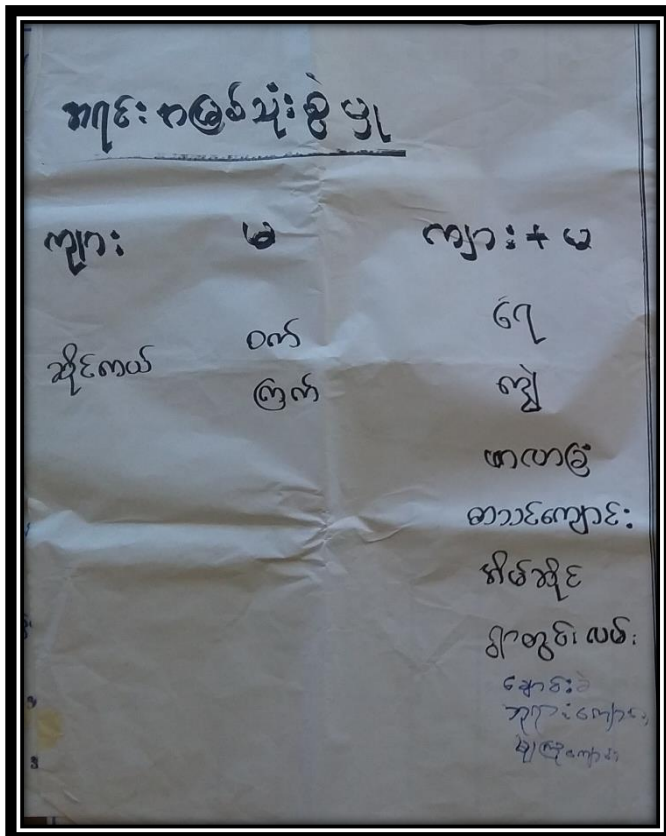 အရင်းအမြစ်သုံးစွဲမှု
ကျား မ ကျား + မ
ဆိုင်ကယ် ဝက် ရေ
ကြက် ကျွဲ
ဖာလာခြံ
စာသင်ကျောင်း
အိမ်ဆိုင်
ရွာတွင်းလမ်း
ဘုရားကျောင်း